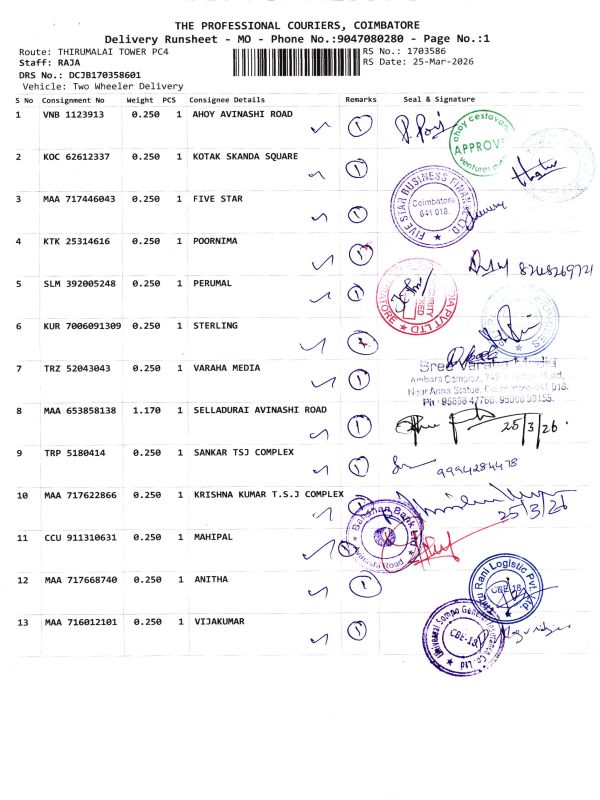 THE PROFESSIONAL COURIERS, COIMBATORE
Delivery Runsheet - MO - Phone No.:9047080280 - Page No.:1
Route: THIRUMALAI TOWER PC4 RS No.: 1703586
Staff: RAJA RS Date: 25-Mar-2026
DRS No.: DCJB170358601
Vehicle: Two Wheeler Delivery
S No Consignment No Weight PCS Consignee Details Remarks Seal & Signature
1 VNB 1123913 0.250 1 AHOY AVINASHI ROAD 1
APPROVE
2 KOC 62612337 0.250 1 KOTAK SKANDA SQUARE 1
3 MAA 717446043 0.250 1 FIVE STAR 1
FIVE STAR BUSINESS FINANCE LTD
Coimbatore
641 018.
4 KTK 25314616 0.250 1 POORNIMA 1
5 SLM 392005248 0.250 1 PERUMAL 1
PVT LTD
6 KUR 7006091309 0.250 1 STERLING 1
7 TRZ 52043043 0.250 1 VARAHA MEDIA 1
Sree Varaha Media
Ambara Complex,
Near Anna Statue, Coimbatore-641 018.
8 MAA 653858138 1.170 1 SELLADURAI AVINASHI ROAD 1 25/3/26.
9 TRP 5180414 0.250 1 SANKAR TSJ COMPLEX 1 9994284478
10 MAA 717622866 0.250 1 KRISHNA KUMAR T.S.J COMPLEX 1 25/3/26
Bandhan Bank Ltd
Avinashi Road
11 CCU 911310631 0.250 1 MAHIPAL 1
12 MAA 717668740 0.250 1 ANITHA 1
Rani Logistic Pvt. Ltd.
CBE-18
13 MAA 716012101 0.250 1 VIJAKUMAR 1
Universal Sompo General Insurance Co. Ltd
CBE-18